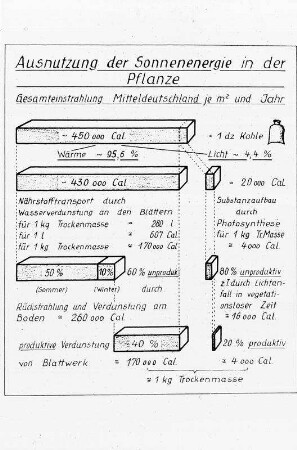 Ausnutzung der Sonnenenergie in der
Pflanze
Gesamteinstrahlung Mitteldeutschland je m² und Jahr
~ 450 000 Cal.
= 1 dz Kohle
Wärme ~ 95,6 %
Licht ~ 4,4 %
~ 430 000 Cal.
= 20 000 Cal.
Nährstofftransport durch
Wasserverdunstung an den Blättern
für 1 kg Trockenmasse = 280 l
für 1 l = 607 Cal.
für 1 kg Trockenmasse ≈ 170 000 Cal
Substanzaufbau
durch
Photosynthese
für 1 kg Tr.Masse
≈ 4 000 Cal.
50 %
10%
60 % unprod.
(Sommer)
(Winter)
durch
Rückstrahlung und Verdunstung am
Boden = 260 000 Cal.
80 % unproduktiv
z.T. durch Lichtein-
fall in vegetati-
onsloser Zeit
= 16 000 Cal.
produktive Verdunstung
= 40 %
20 % produktiv
von Blattwerk = 170 000 Cal.
= 4 000 Cal.
≈ 1 kg Trockenmasse